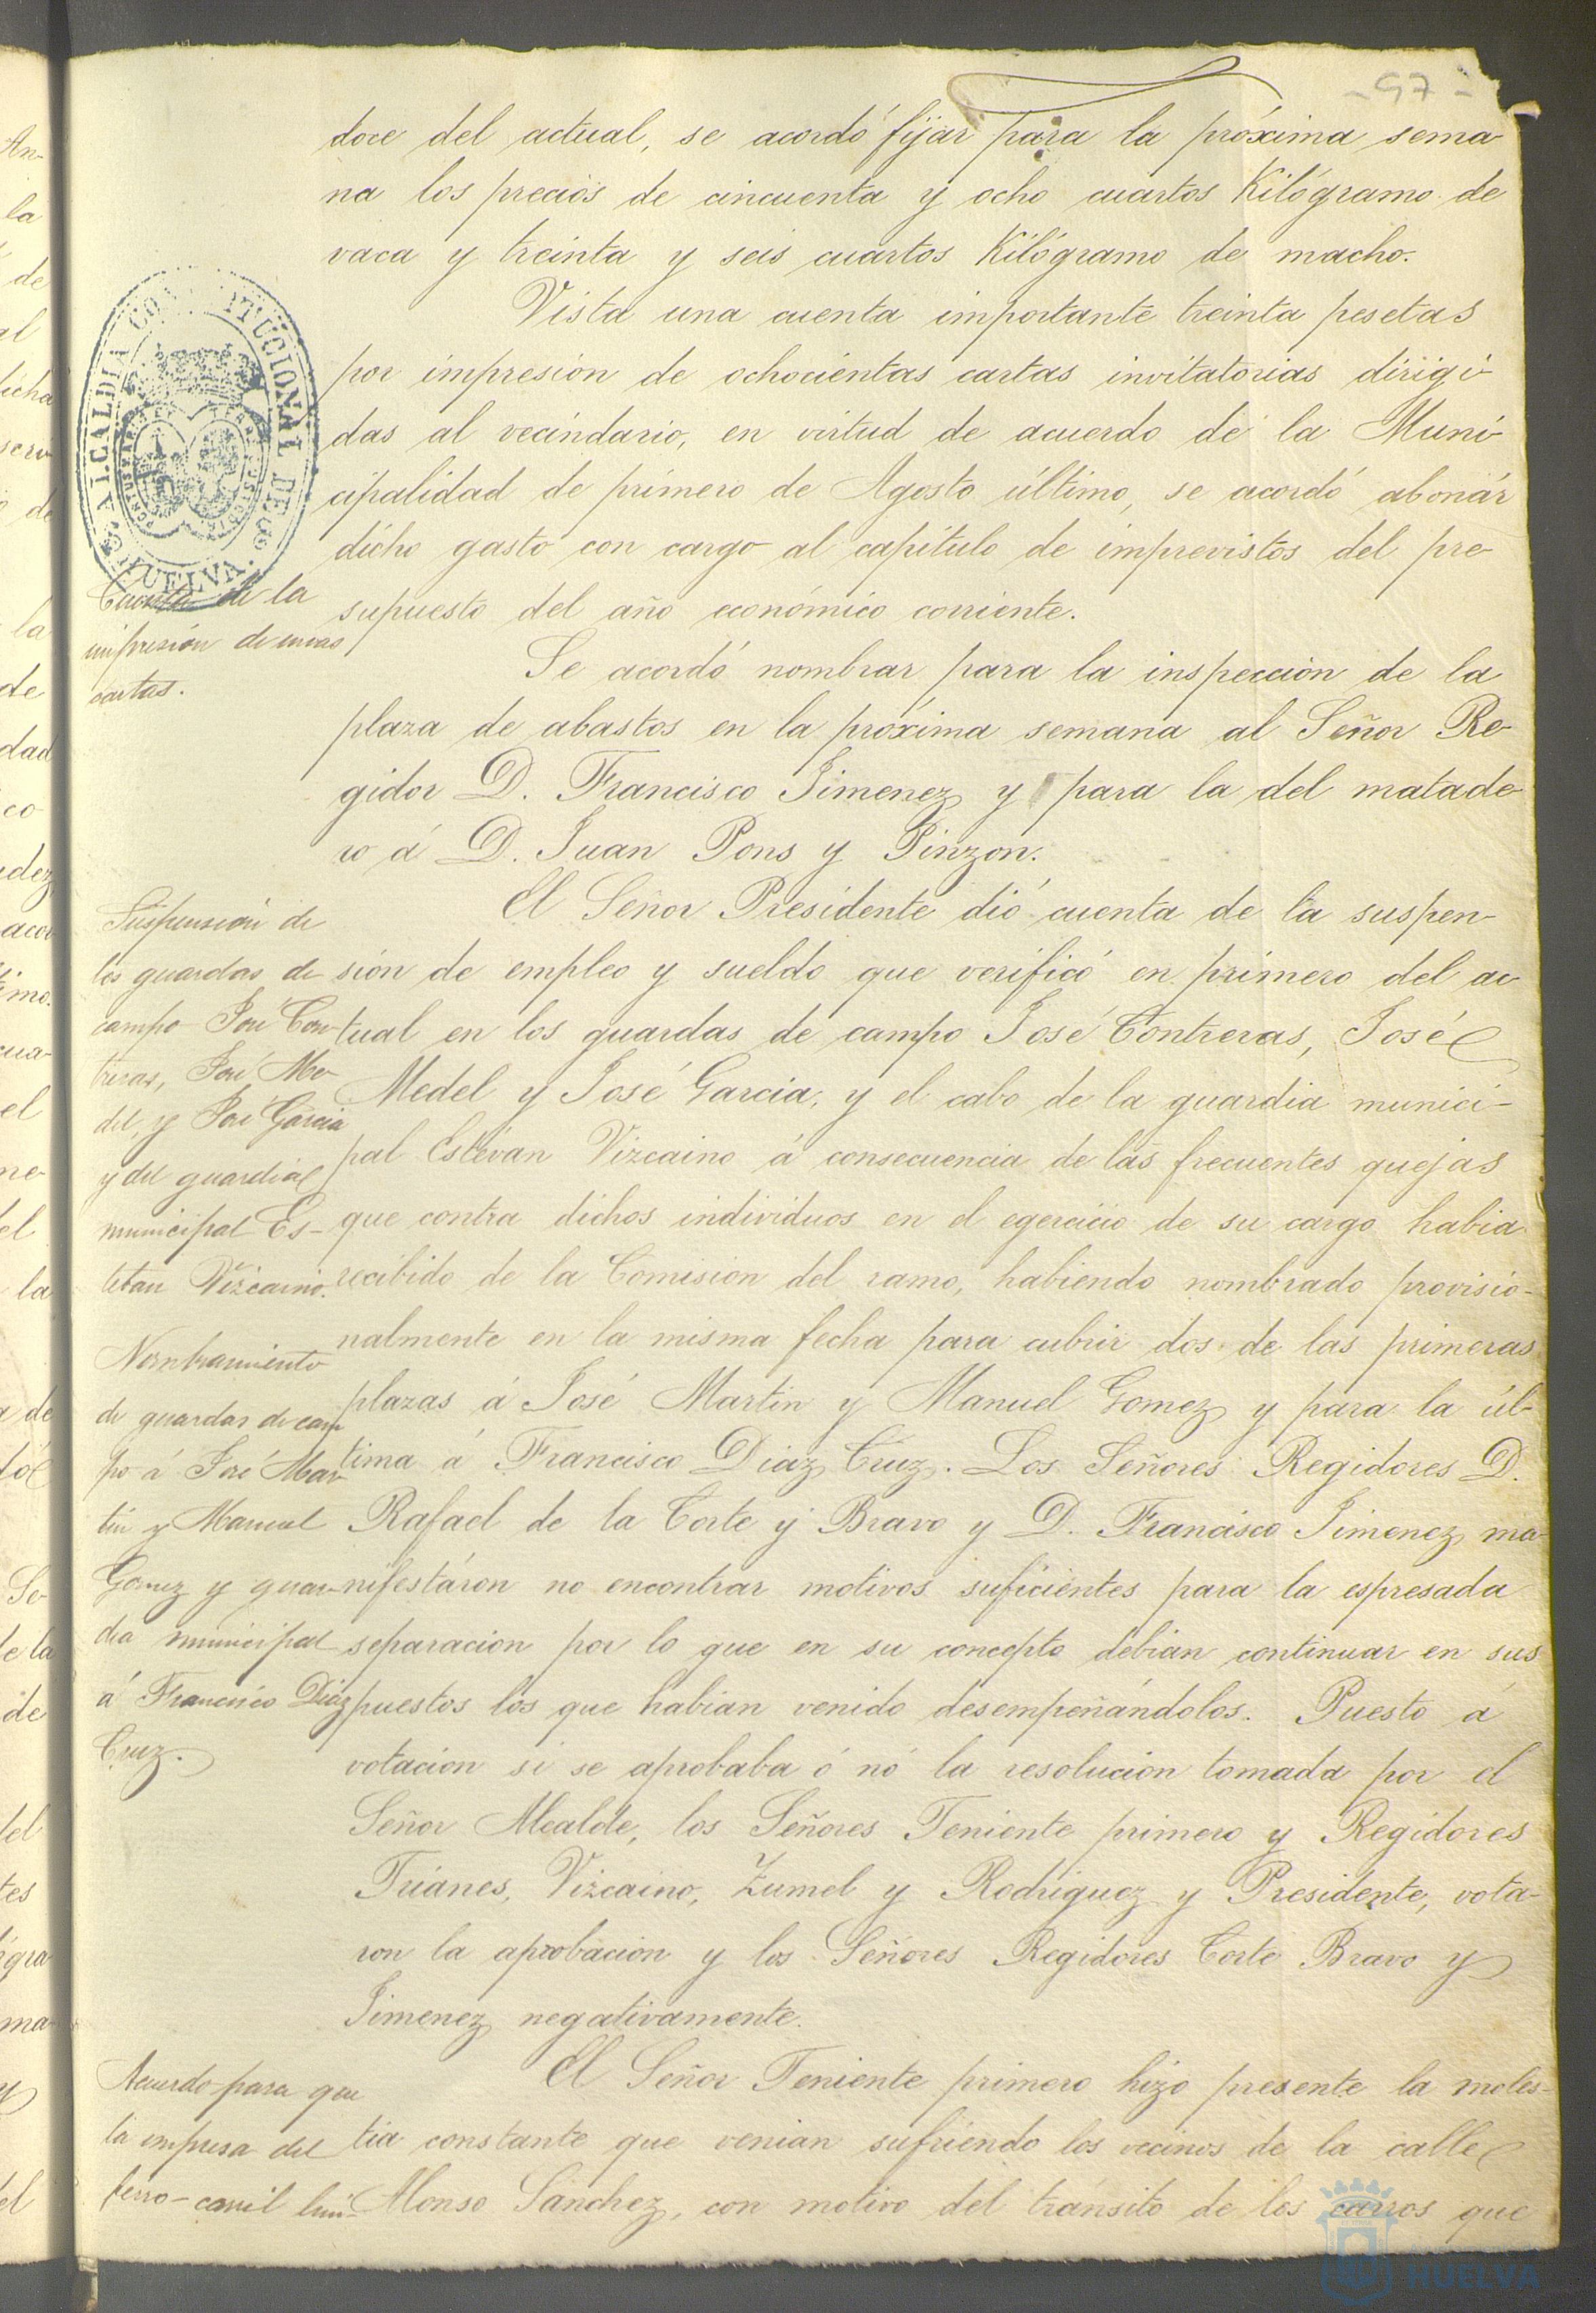 - 97 -
doce del actual, se acordó fijar para la próxima sema-
na los precios de cincuenta y ocho cuartos Kilógramo de
vaca y treinta y seis cuartos Kilógramo de macho.
Vista una cuenta importante treinta pesetas
por impresión de ochocientas cartas invitatorias dirigi-
das al vecindario, en virtud de acuerdo de la Muni-
cipalidad de primero de Agosto último, se acordó abonár
dicho gasto con cargo al capítulo de imprevistos del pre-
supuesto del año económico corriente.
Se acordó nombrar para la inspección de la
plaza de abastos en la próxima semana al Señor Re-
gidor D. Francisco Jimenez y para la del matade-
ro á D. Juan Pons y Pinzon.
El Señor Presidente dió cuenta de la suspen-
sión de empleo y sueldo que verificó en primero del ac-
tual en los guardas de campo José Contreras, José
Medel y José Garcia, y el cabo de la guardia munici-
pal Estévan Vizcaino á consecuencia de las frecuentes quejas
que contra dichos individuos en el egercicio de su cargo habia
recibido de la Comision del ramo, habiendo nombrado provisio-
nalmente en la misma fecha para cubrir dos de las primeras
plazas á José Martin y Manuel Gomez y para la úl-
tima á Francisco Diaz Cruz. Los Señores Regidores D.
Rafael de la Corte y Bravo y D. Francisco Jimenez ma-
nifestáron no encontrar motivos suficientes para la espresada
separacion por lo que en su concepto debian continuar en sus
puestos los que habian venido desempeñándolos. Puesto á
votacion si se aprobaba ó nó la resolucion tomada por el
Señor Alcalde, los Señores Teniente primero y Regidores
Triánes, Vizcaino, Zumel y Rodriguez y Presidente, vota-
ron la aprobacion y los Señores Regidores Corte Bravo y
Jimenez negativamente.
El Señor Teniente primero hizo presente la moles-
tia constante que venian sufriendo los vecinos de la calle
Alonso Sanchez, con motivo del tránsito de los carros que
ALCALDIA CONSTITUCIONAL DE HUELVA
Cuenta de la
impresión de unas
cartas.
Suspensión de
los guardas de
campo José Con-
treras, José Me-
del, y José Garcia
y del guardia
municipal Es-
tetan Vizcaino.
Nombramiento
de guardas de cam-
po á José Mar-
tin y Manuel
Gomez y guar-
dia municipal
á Francisco Diaz
Cruz.
Acuerdo para que
la empresa del
ferro-carril
HUELVA